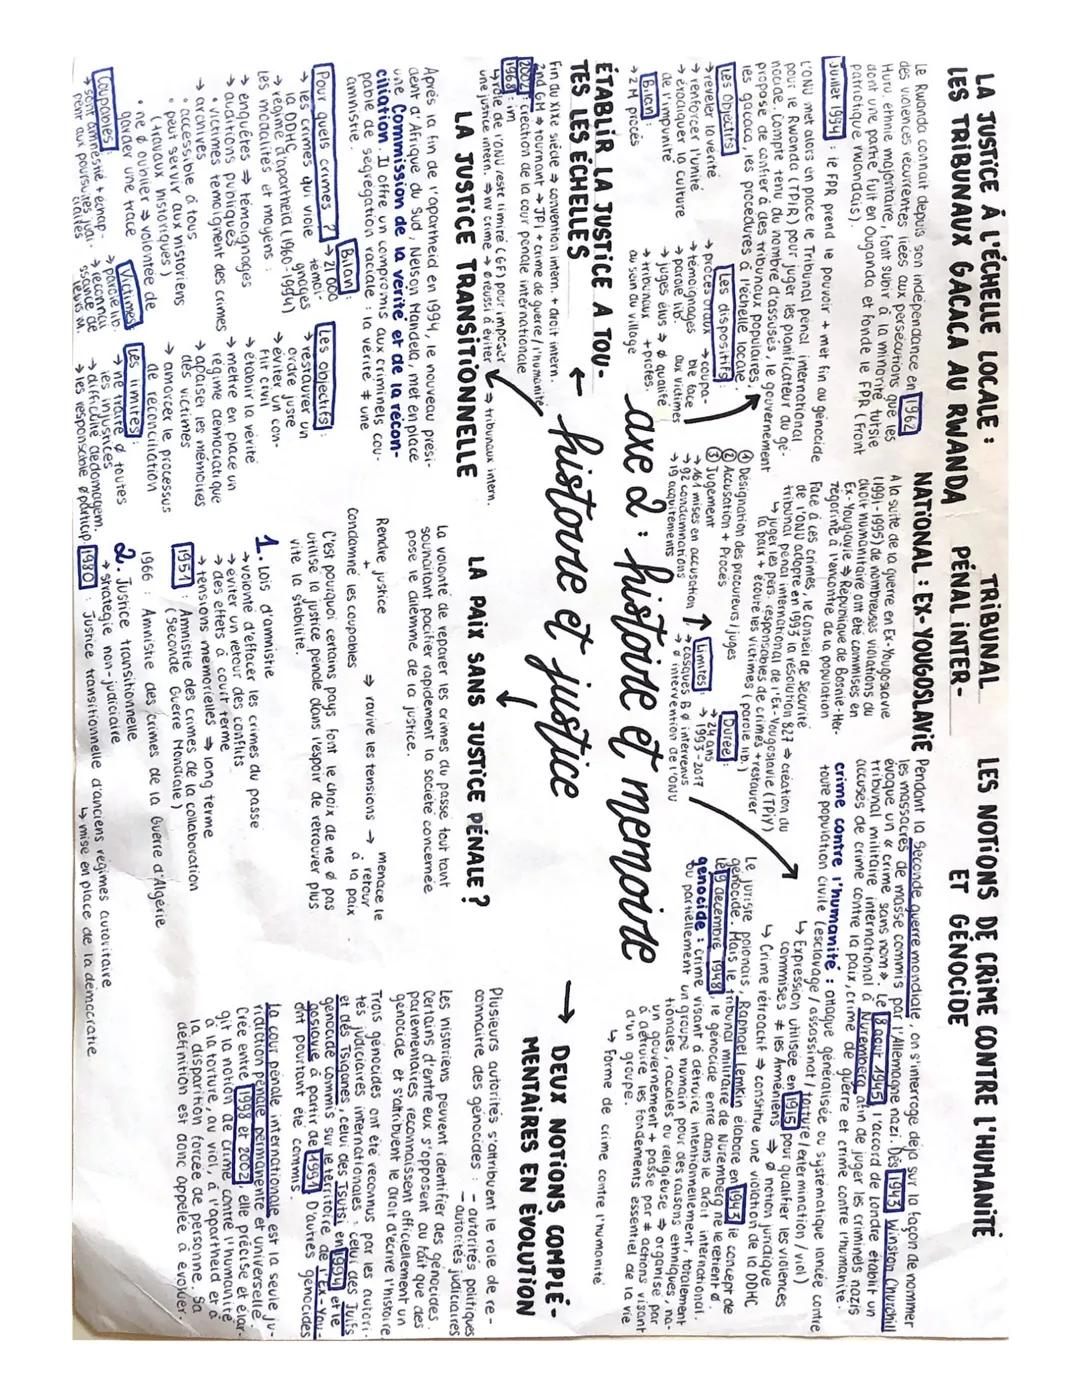 LA JUSTICE À L'ÉCHELLE LOCALE :
LES TRIBUNAUX GACACA AU RWANDA
Le Rwanda connait depuis son indépendance en 1962
des violences récurrentes liées aux persécutions que les
Hutu, ethnie majoritaire, font subir à la minorité tutsie
dont une partie fuit en Ouganda et fonde le FPR (Front
Patriotique rwandais).
Juillet 1994 : le FPR prend le pouvoir + met fin au génocide
L'ONU met alors en place le Tribunal pénal international
pour le Rwanda (TPIR) pour juger les planificateur du gé-
nocide. Compte tenu du nombre d'assusés, le gouvernement
propose de confier à des tribunaux populaires,
les gacaca, les procédures à l'échelle locale.
Les Objectifs
→ révéler la vérité
→ renforcer l'unité
→ éradiquer la culture
de l'impunité
Bilan :
→ 2 M procès
Les dispositifs :
→ procès oraux → coupa-
→ témoignages ble face
→ parole lib. aux victimes
→ juges élus ⇒ ø qualité
→ tribunaux + protes.
au sein du village
TRIBUNAL
PÉNAL INTER-
NATIONAL : EX-YOUGOSLAVIE
A la suite de la guerre en Ex-Yougoslavie
(1991-1995) de nombreuses violations du
droit humanitaire ont été commises en
Ex-Yougavie ⇒ République de Bosnie-Her-
zégorine à l'encontre de la population
Face à ces crimes, le Conseil de Sécurité
de l'ONU adopte en 1993 la résolution 827 ⇒ création du
tribunal pénal international de l'Ex-Yougoslavie (TPIY)
↳ juger les pers. responsables de crimes + restaurer
la paix + écoute les victimes (parole lib.)
① Désignation des procureurs/juges
② Accusation + Procès
③ Jugement
→ 161 mises en accusation
→ 92 condamnations
→ 19 acquitements
Durée :
→ 24 ans
→ 1993-2017
Limites :
→ casques B ø intervenus
ø intervention de l'ONU
LES NOTIONS DE CRIME CONTRE L'HUMANITÉ
ET GÉNOCIDE
Pendant la Seconde guerre mondiale, on s'interroge déjà sur la façon de nommer
les massacres de masse commis par l'Allemagne nazi. Dès 1943 Winston Churchill
évoque un « crime sans nom ». Le 8 août 1945, l'accord de Londre établit un
tribunal militaire international à Nuremberg afin de juger les criminels nazis
accusés de crime contre la paix, crime de guerre et crime contre l'humanité.
crime contre l'humanité : attaque généralisée ou systématique lancée contre
toute population civile (esclavage / assassinat / torture / extermination / viol)
↳ Expression utilisée en 1915 pour qualifier les violences
commises ≠ les Arméniens ⇒ ø notion juridique
↳ Crime rétroactif ⇒ constitue une violation de la DDHC
Le juriste polonais, Raphael Lemkin élabore en 1943 le concept de
génocide. Mais le tribunal militaire de Nuremberg ne le retient ø.
Le 9 décembre 1948, le génocide entre dans le droit international.
génocide : crime visant à détruire intentionnellement, totalement
ou partiellement un groupe humain pour des raisons ethniques, na-
tionales, raciales ou religieuse ⇒ organisé par
un gouvernement + passe par ≠ actions visant
à détruire les fondements essentiel de la vie
d'un groupe.
↳ Forme de crime contre l'humanité
axe 2 : histoire et memoire
histoire et justice
ÉTABLIR LA JUSTICE A TOU-
TES LES ÉCHELLES
Fin du XIXe siècle ⇒ convention intern. + droit intern.
2nd GM ⇒ tournant → JPI + crime de guerre/l'humanité
2002 : création de la cour pénale internationale
1968 : im
↳ rôle de l'ONU reste limité (GF) pour imposer ⇒ tribunaux intern.
une justice intern. ⇒ nv crime → ø réussi à éviter
LA JUSTICE TRANSITIONNELLE
Après la fin de l'apartheid en 1994, le nouveau prési-
dent d'Afrique du Sud, Nelson Mandela, met en place
une Commission de la vérité et de la récon-
ciliation. Il offre un compromis aux criminels cou-
pable de ségrégation raciale : la vérité ≠ une
amnistie.
Pour quels crimes ?
→ les crimes qui viole
la DDHC
→ régime d'apartheid (1960-1994)
les modalités et moyens :
→ enquêtes ⇒ témoignages
→ auditions publiques
• victimes témoignent des crimes
→ archives
• accessible à tous
• peut servir aux historiens
(travaux historiques)
• ne ø oublier ⇒ volontée de
garder une trace
Coupables :
→ sont amnestié + échap-
pent aux poursuites judi-
ciaires
Victimes :
→ parole lib.
→ reconnai
ssance de
leurs M.
Bilan :
→ 21 000
témoi-
gnages
Les objectifs :
→ restaurer un
ordre juste
→ éviter un con-
flit civil
→ établir la vérité
→ mettre en place un
régime démocratique
→ apaiser les mémoires
des victimes
→ amorcer le processus
de réconciliation
Les limites :
→ ne traite ø toutes
les injustices
→ difficulté dédomagem.
→ les responsable ø particip
LA PAIX SANS JUSTICE PÉNALE ?
La volonté de réparer les crimes du passé tout tant
souhaitant pacifier rapidement la société concernée
pose le dilemme de la justice.
Rendre justice
+
Condamné les coupables ⇒ ravive les tensions → menace le
retour
à la paix
C'est pourquoi certains pays font le choix de ne ø pas
utilise la justice pénale dans l'espoir de retrouver plus
vite la stabilité.
1. Lois d'amnistie
→ volonté d'effacer les crimes du passe
→ éviter un retour des conflits
→ des effets à court terme
→ tensions mémorielles ⇒ long terme
1951 : Amnistie des crimes de la collaboration
(Seconde Guerre Mondiale)
1966 : Amnistie des crimes de la Guerre d'Algérie
2. Justice transitionnelle
→ stratégie non-judiciaire
1980 : Justice transitionnelle d'anciens régimes autoritaire
↳ mise en place de la démocratie
→ DEUX NOTIONS COMPLÉ-
MENTAIRES EN ÉVOLUTION
Plusieurs autorités s'attribuent le role de re-
connaitre des génocides : - autorités politiques
- autorités judiciaires
Les historiens peuvent identifier des génocides.
Certains d'entre eux s'opposent au fait que des
parlementaires reconnaissent officiellement un
génocide et s'attribuent le droit d'écrire l'histoire
Trois génocides ont été reconnus par les autori-
tés judiciaires internationales : celui des Juifs
et des Tsiganes, celui des Tsutsi en 1994 et le
génocide commis sur le territoire de l'Ex-You-
goslavie à partir de 1991. D'autres génocides
ont pourtant été commis.
La cour pénale internationale est la seule ju-
ridiction pénale permanente et universelle.
Crée entre 1998 et 2002, elle précise et élar-
git la notion de crime contre l'humanité
à la torture, au viol, à l'apartheid et à
la disparition forcée de personne. Sa
définition est donc appelée à évoluer.